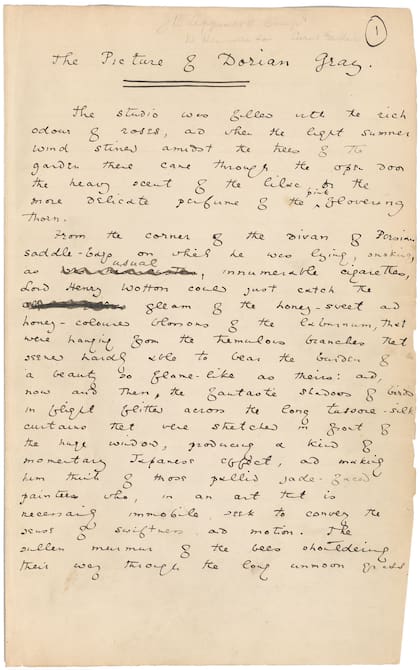 1
The Picture of Dorian Gray.
The studio was filled with the rich
odour of roses, and when the light summer
wind stirred amidst the trees of the
garden there came through the open door
the heavy scent of the lilac, or the
more delicate perfume of the pink flowering
thorn.
From the corner of the divan of Persian
saddle-bags on which he was lying, smoking,
as usual, innumerable cigarettes,
Lord Henry Wotton could just catch the
gleam of the honey-sweet and
honey-coloured blossoms of the laburnum, that
were hanging from the tremulous branches that
seem hardly able to bear the burden of
a beauty so flame-like as theirs: and,
now and then, the fantastic shadows of birds
in flight flitted across the long tussore-silk
curtains that were stretched in front of
the huge window, producing a kind of
momentary Japanese effect, and making
him think of those pallid jade-faced
painters who, in an art that is
necessarily immobile, seek to convey the
sense of swiftness and motion. The
sullen murmur of the bees shouldering
their way through the long unmown grass